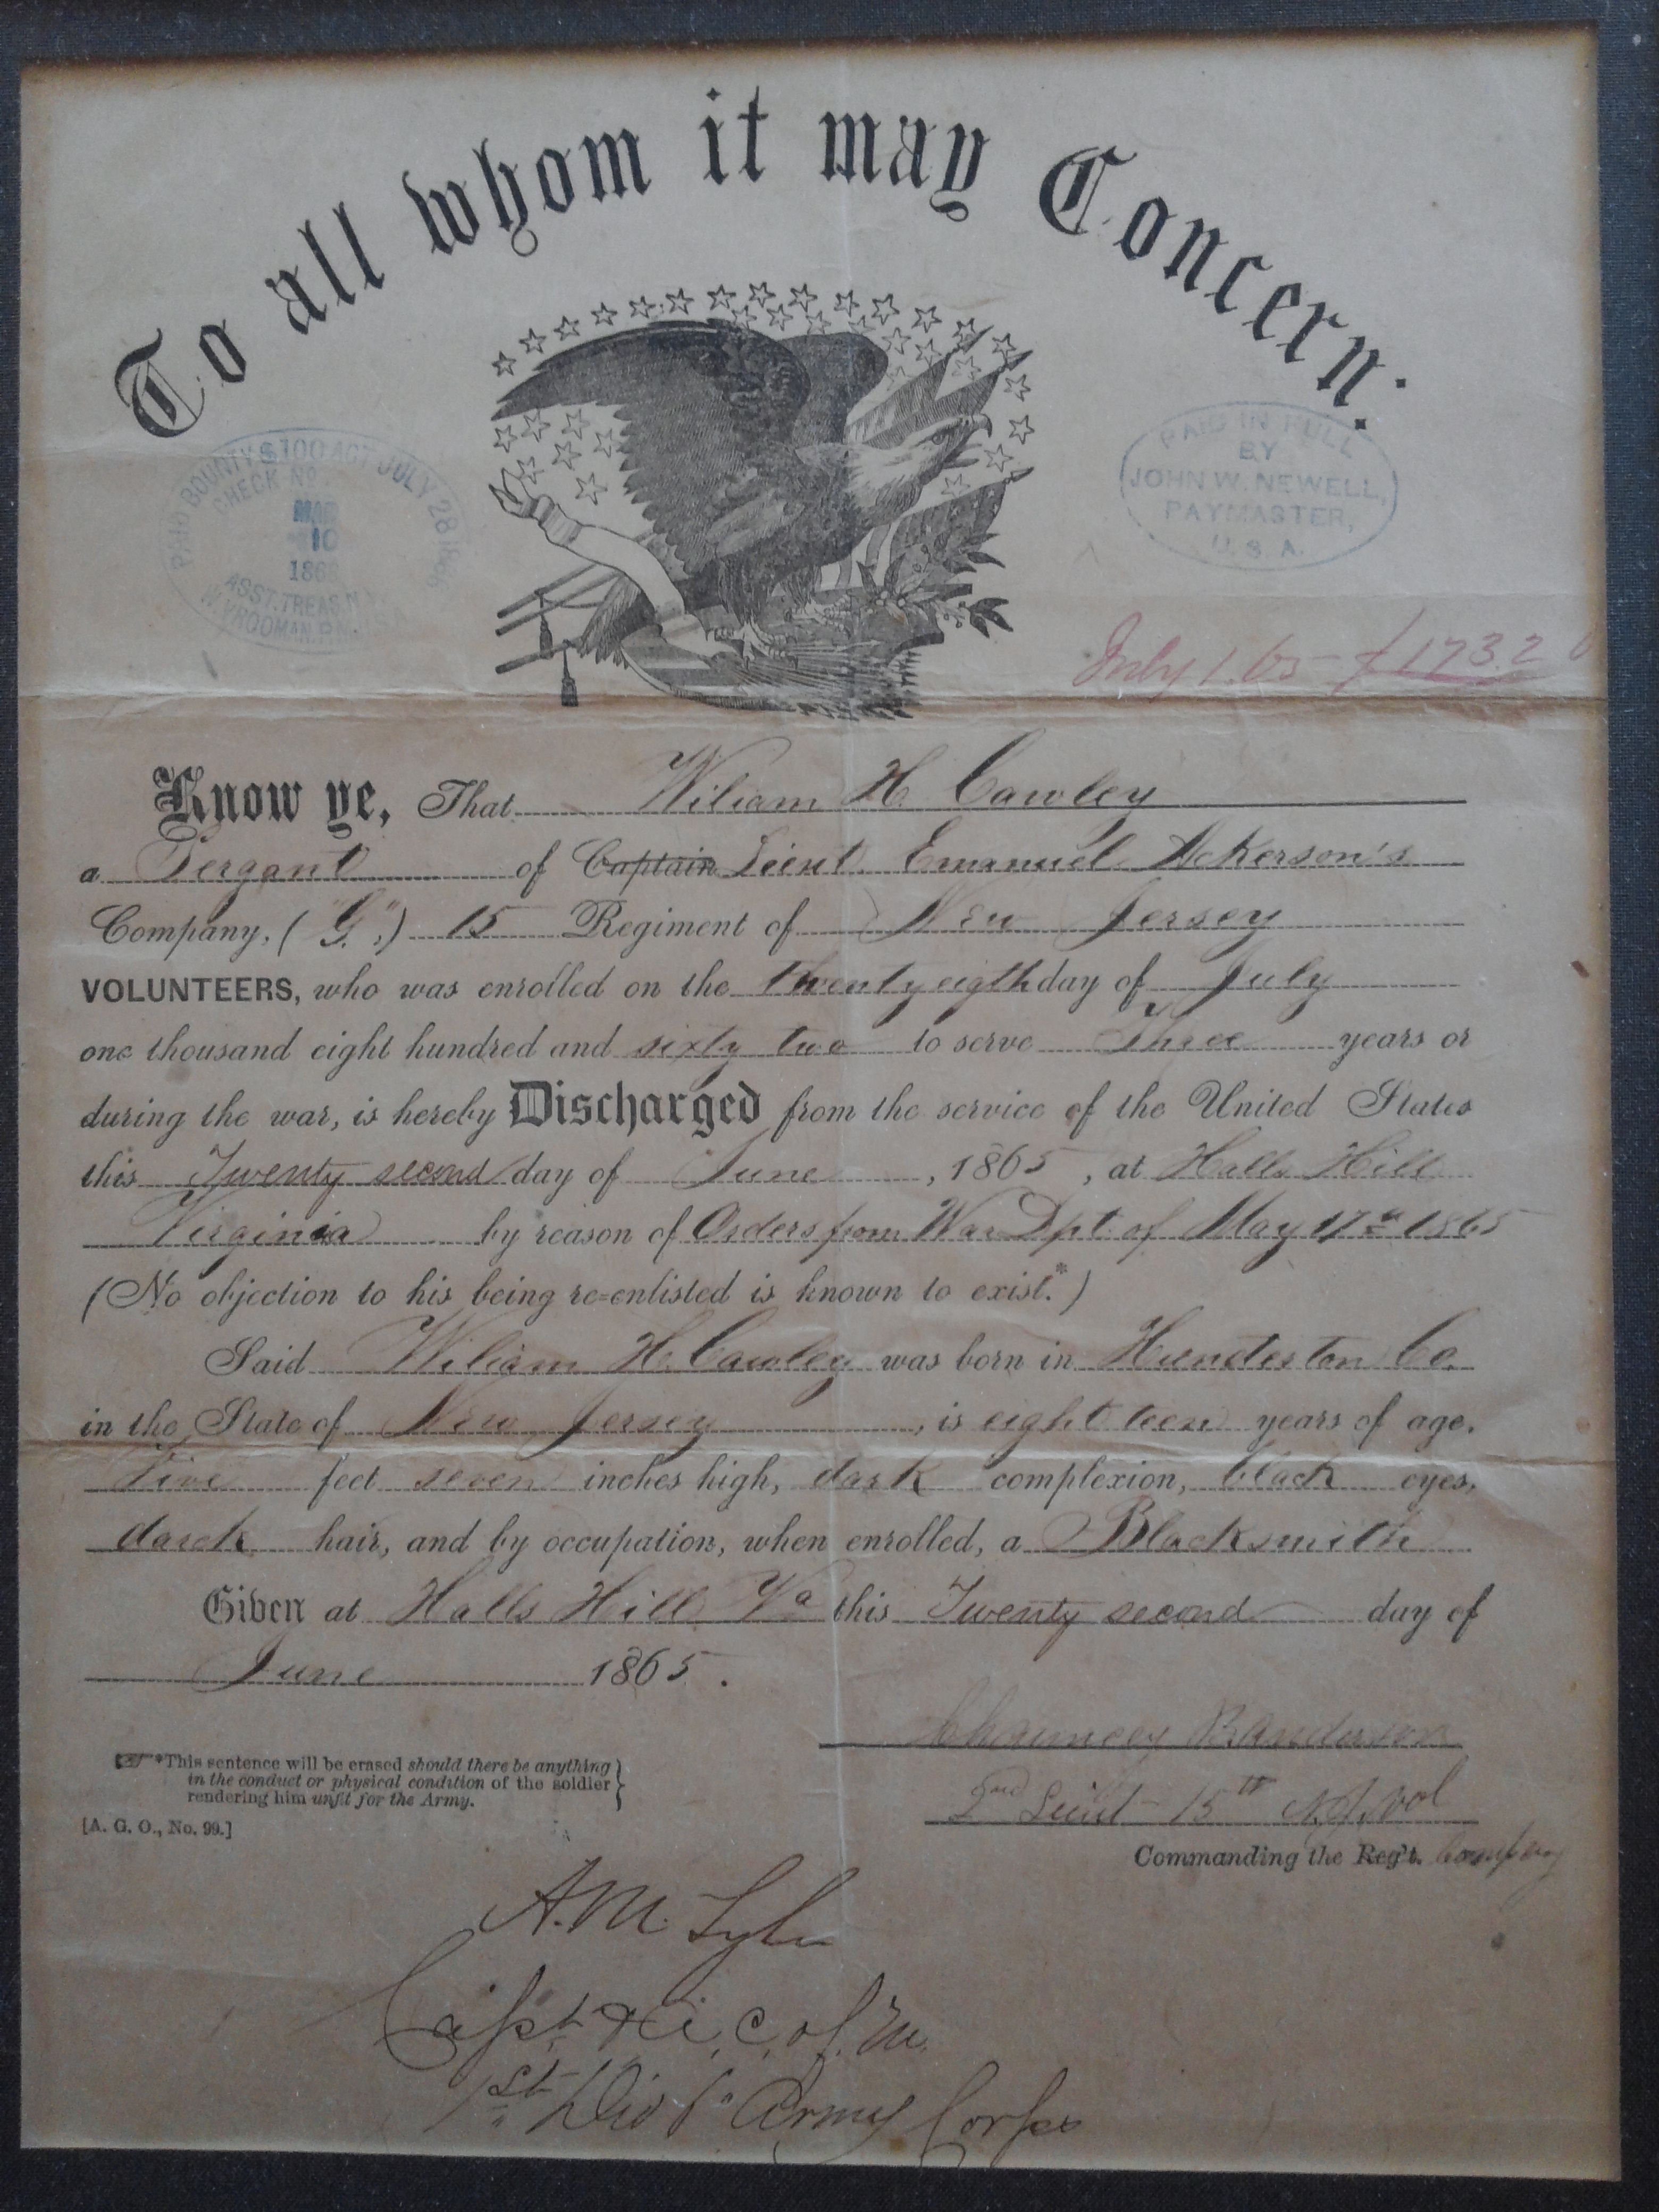 To all whom it may Concern:
PAID BOUNTY $100 ACT JULY 28 1866
CHECK No.
MAR
10
186
ASST. TREAS. N.
PAID IN FULL
BY
JOHN W. NEWELL,
PAYMASTER,
U. S. A.
July 1. 65 - $173.2
Know ye, That Wiliam H. Cawley
a Sergant of Captain Lieut. Emanuel Ackerson's
Company, ("G",) 15 Regiment of New Jersey
VOLUNTEERS, who was enrolled on the twenty eigth day of July
one thousand eight hundred and sixty two to serve Three years or
during the war, is hereby Discharged from the service of the United States
this Twenty second day of June, 1865, at Halls Hill
Virginia by reason of Orders from War Dpt. of May 17th 1865
(No objection to his being re-enlisted is known to exist.*)
Said Wiliam H. Cawley was born in Hunderton Co.
in the State of New Jersey, is eight teen years of age,
Five feet seven inches high, dark complexion, black eyes,
darck hair, and by occupation, when enrolled, a Blacksmith
Given at Halls Hill Va this Twenty second day of
June 1865.
Chauncey
2nd Lieut 15th N.J. Vol
Commanding the Reg't. Company
*This sentence will be erased should there be anything
in the conduct or physical condition of the soldier
rendering him unfit for the Army.
[A. G. O., No. 99.]
A. M. Tyler
Capt & C. of M.
1st Div 6" Army Corps